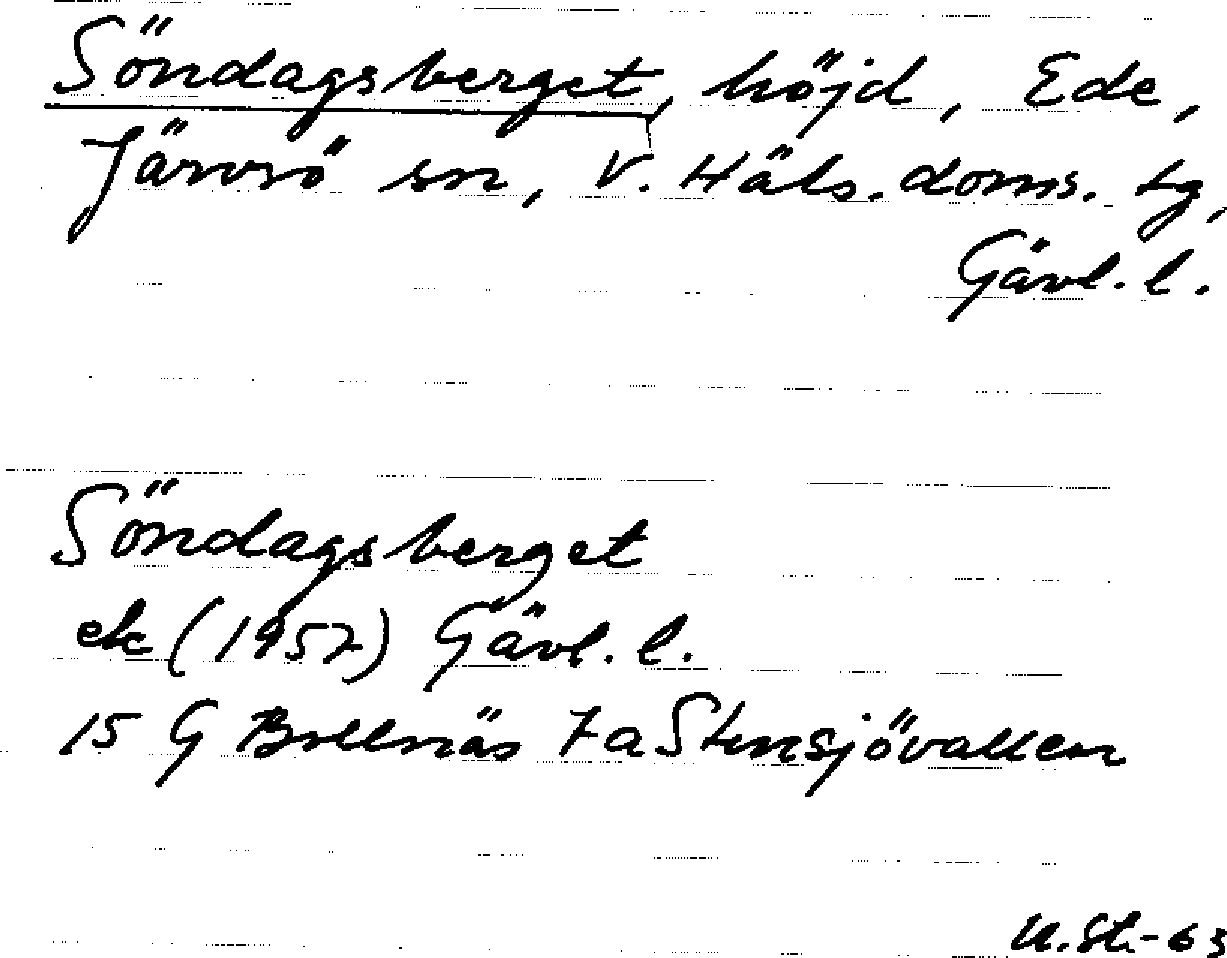 Söndagsberget, höjd, Ede,
Järvsö sn, V. Häls. doms. tg,
Gävl. l.
Söndagsberget
ek (1957) Gävl. l.
15 G Bollnäs 7a Stensjövallen
U.St.-63